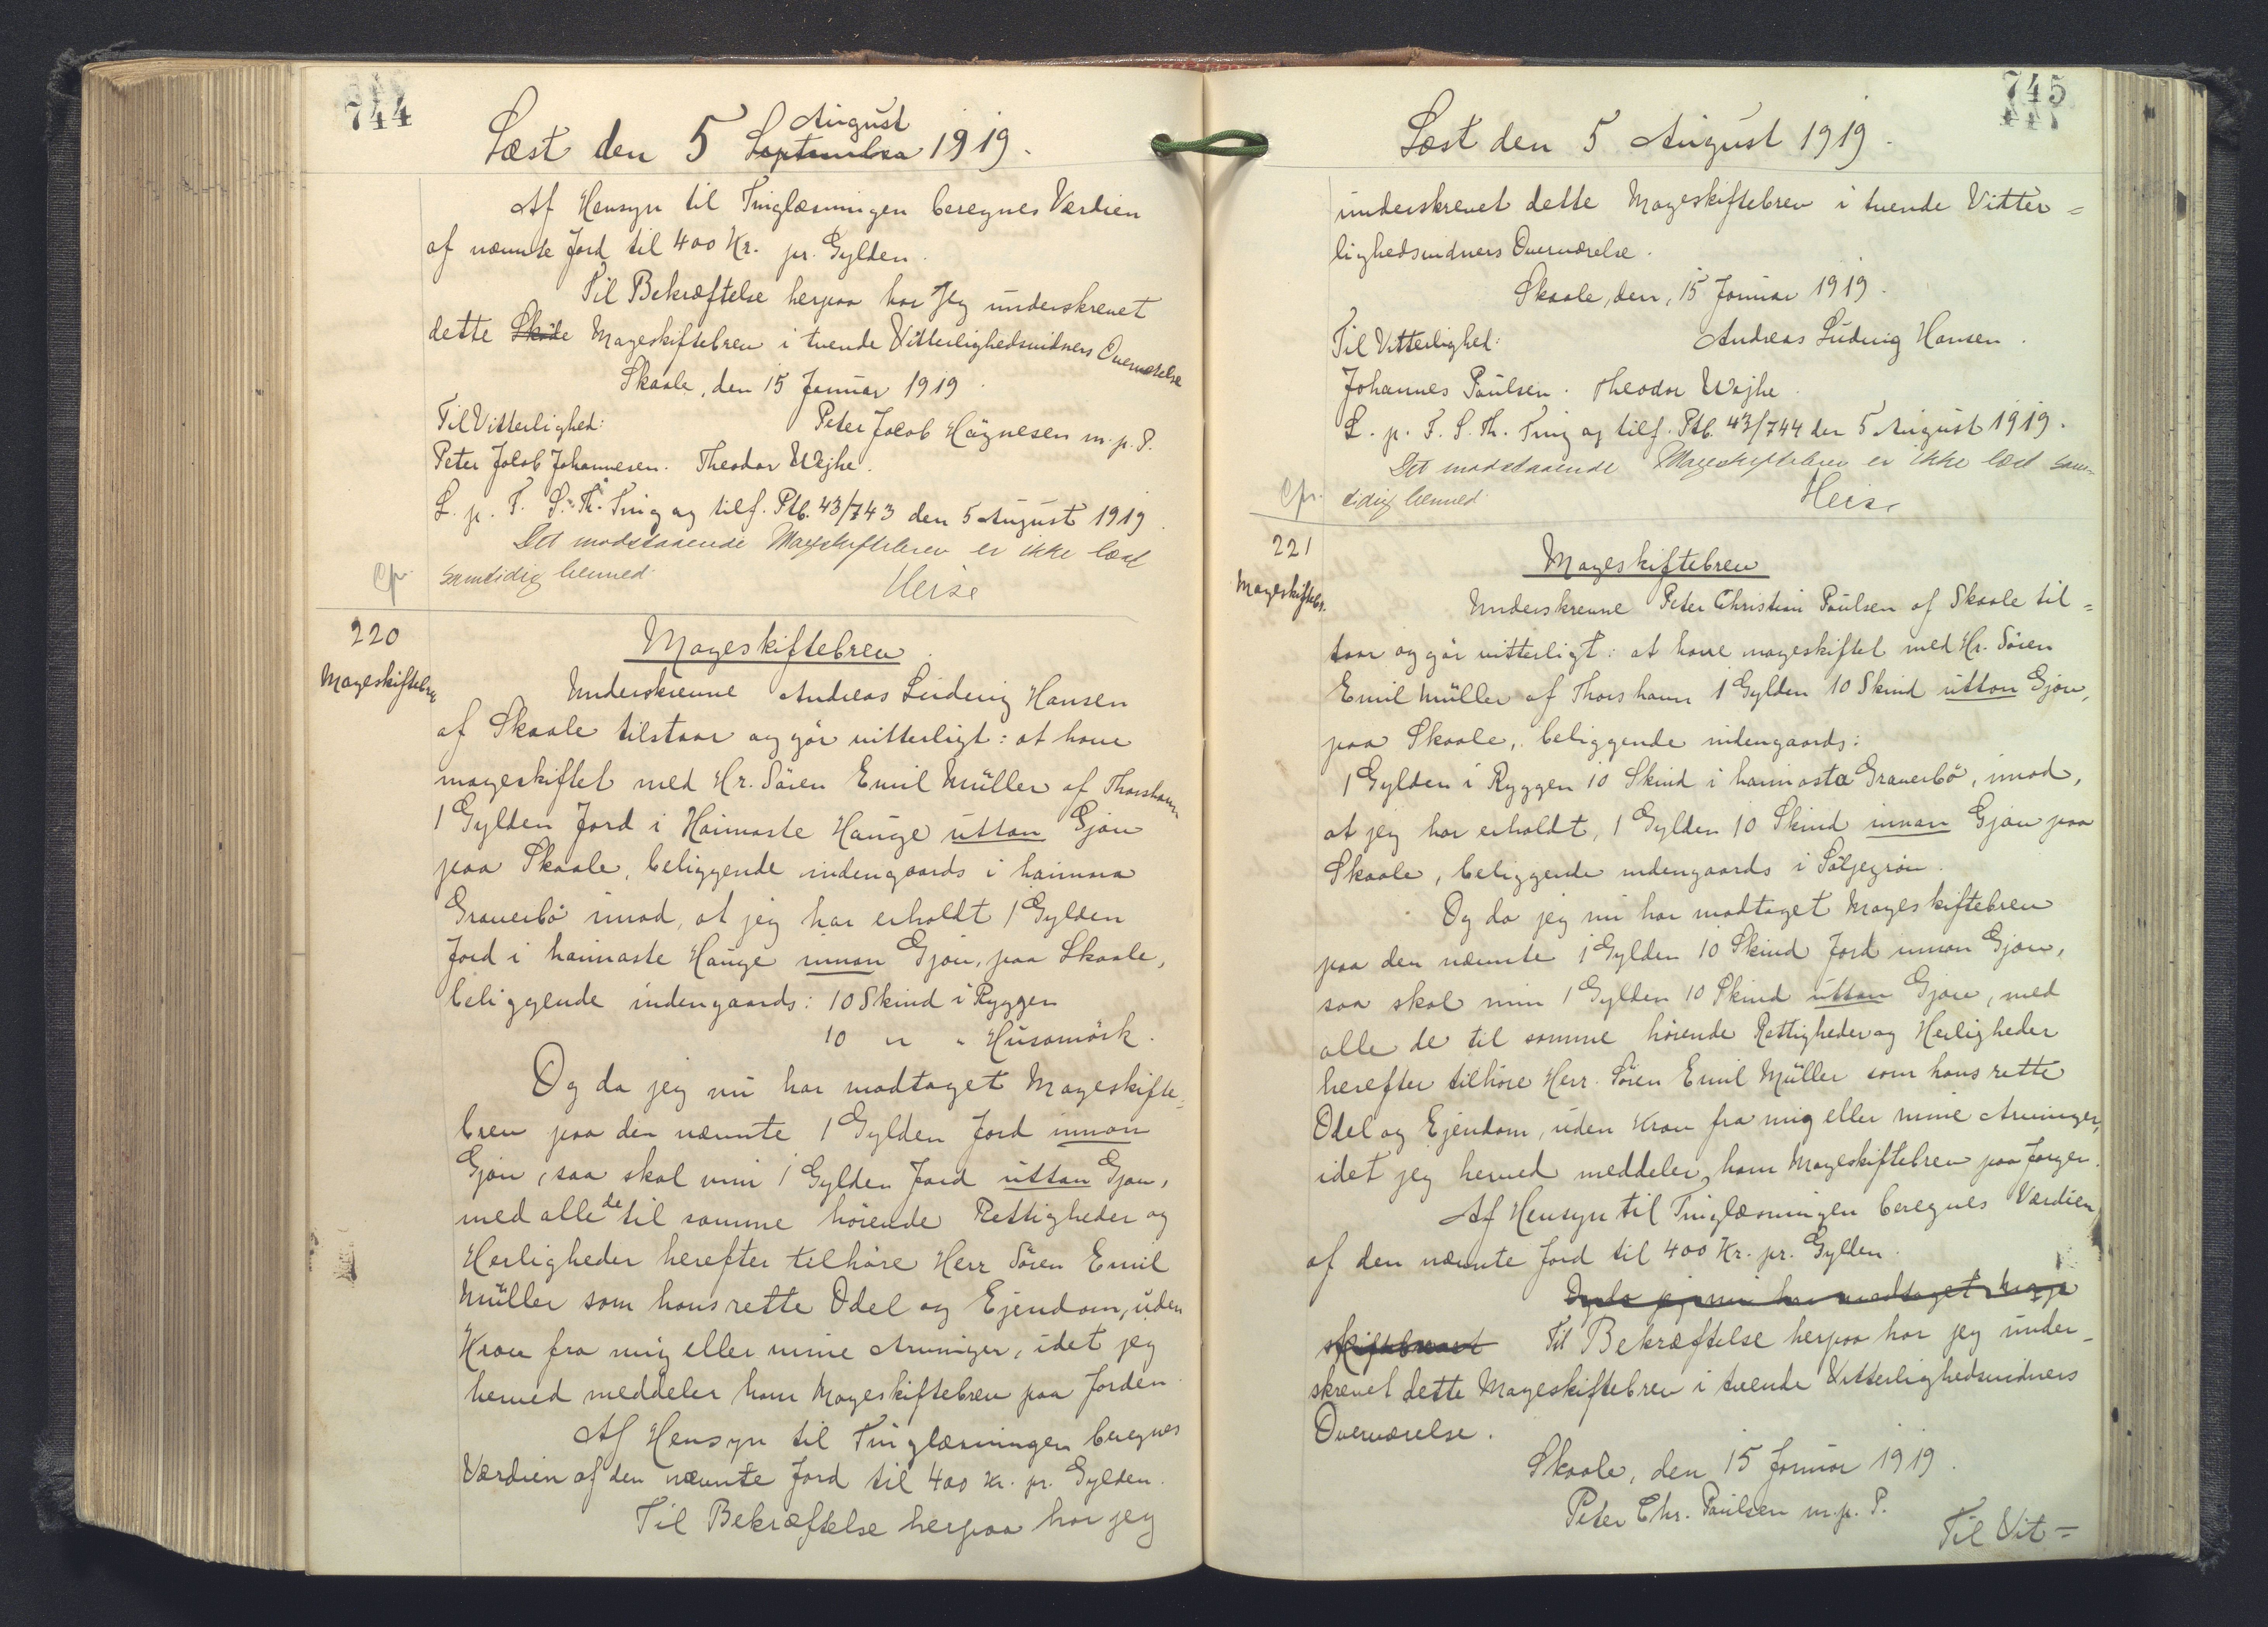 744
Læst den 5 September August 1919.
Af Hensyn til Tinglæsningen beregnes Værdien
af nævnte Jord til 400 Kr. pr. Gylden.
Til Bekræftelse herpaa har Jeg underskrevet
dette Sköde Mageskiftebrev i tvende Vitterlighedsvidners Overværelse
Skaale, den 15 Januar 1919.
Til Vitterlighed:
Peter Jacob Högnesen m. p. P.
Peter Jacob Johannesen. Theodor Wejhe.
L. p. F. S. Th. Ting og tilf. Ptb. 43/743 den 5 August 1919.
Det modstaaende Mageskiftebrev er ikke læst
Cfr. samtidig hermed.
Heise
220
Mageskiftebrev
Mageskiftebrev.
Underskrevne Andreas Ludvig Hansen
af Skaale tilstaar og gör vitterligt: at have
mageskiftet med Hr. Sören Emil Müller af Thorshavn
1 Gylden Jord i Haimaste Hauge uttan Gjou
paa Skaale, beliggende indengaards i haimara
Graverbö imod, at jeg har erholdt 1 Gylden
Jord i haimaste Hauge innan Gjou, paa Skaale,
beliggende indengaards: 10 Skind i Ryggen
10 " " Husamörk.
Og da jeg nu har modtaget Mageskifte=
brev paa den nævnte 1 Gylden Jord innan
Gjou, saa skal min 1 Gylden Jord uttan Gjou,
med alle de til samme hörende Rettigheder og
Herligheder herefter tilhöre Herr Sören Emil
Müller som hans rette Odel og Ejendom, uden
Krav fra mig eller mine Arvinger, idet jeg
herved meddeler ham Mageskiftebrev paa Jorden.
Af Hensyn til Tinglæsningen beregnes
Værdien af den nævnte Jord til 400 Kr. pr. Gylden.
Til Bekræftelse herpaa har jeg
745
Læst den 5 August 1919.
underskrevet dette Mageskiftebrev i tvende Vitter=
lighedsvidners Overværelse.
Skaale, den, 15 Januar 1919.
Til Vitterlighed:
Andreas Ludvig Hansen.
Johannes Paulsen. Theodor Wejhe.
L. p. F. S. Th. Ting og tilf. Ptb. 43/744 den 5 August 1919.
Det modstaaende Mageskiftebrev er ikke læst sam=
Cfr. tidig hermed.
Heise
221
Mageskiftebr.
Mageskiftebrev
Underskrevne Peter Christian Paulsen af Skaale til=
staar og gör vitterligt: at have mageskiftet med Hr. Sören
Emil Müller af Thorshavn 1 Gylden 10 Skind uttan Gjou,
paa Skaale, beliggende indengaards:
1 Gylden i Ryggen 10 Skind i haimasta Graverbö, imod,
at jeg har erholdt, 1 Gylden 10 Skind innan Gjou paa
Skaale, beliggende indengaards i Söljegröu.
Og da jeg nu har modtaget Mageskiftebrev
paa den nævnte 1 Gylden 10 Skind Jord innan Gjou,
saa skal min 1 Gylden 10 Skind uttan Gjou, med
alle de til samme hörende Rettigheder og Herligheder
herefter tilhöre Herr. Sören Emil Müller som hans rette
Odel og Ejendom, uden Krav fra mig eller mine Arvinger,
idet jeg herved meddeler, ham Mageskiftebrev paa Jorden.
Af Hensyn til Tinglæsningen beregnes Værdien
af den nævnte Jord til 400 Kr. pr. Gylden.
Og da jeg nu har modtaget Mage
skiftebrevet Til Bekræftelse herpaa har jeg under-
skrevet dette Mageskiftebrev i tvende Vitterlighedsvidners
Overværelse.
Skaale, den 15 Januar 1919.
Peter Chr. Paulsen m. p. P.
Til Vit=